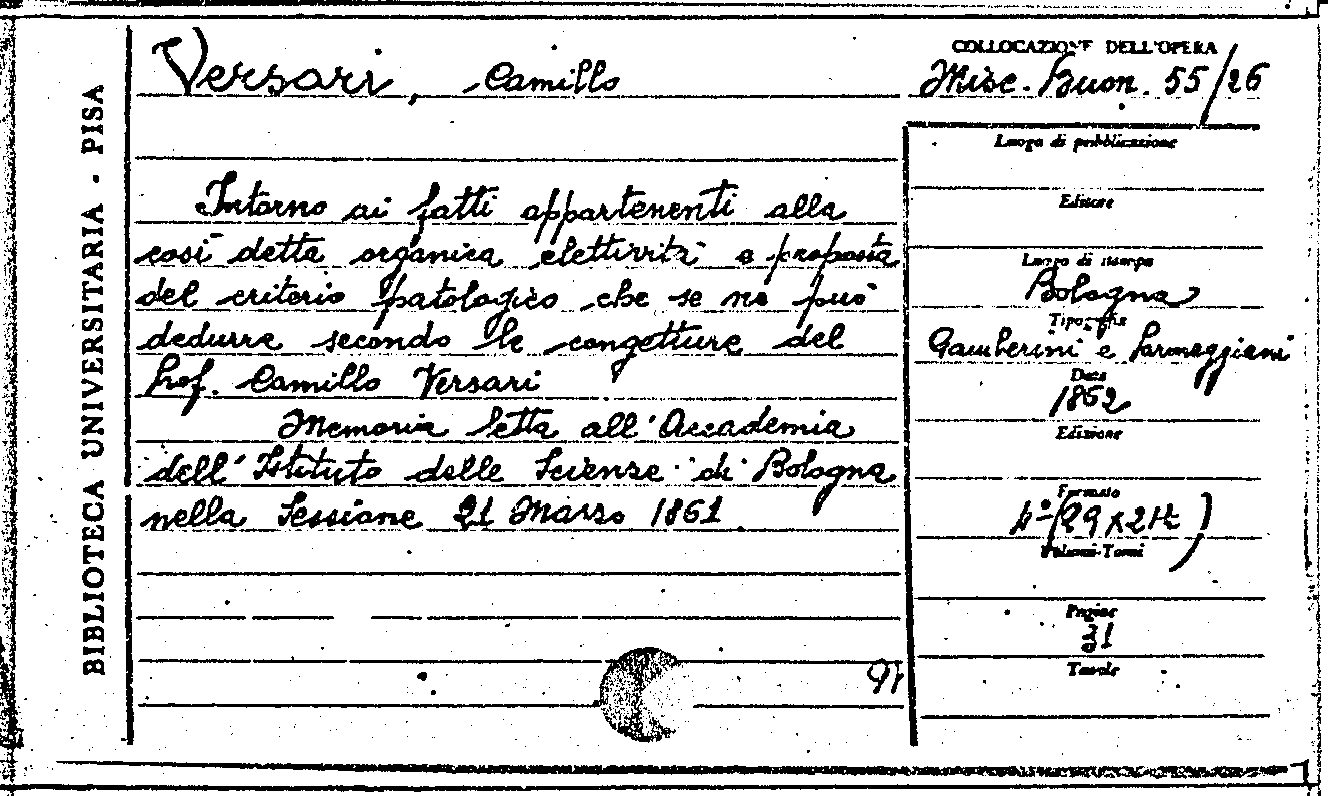 BIBLIOTECA UNIVERSITARIA - PISA
Versari, Camillo
Intorno ai fatti appartenenti alla
così detta organica elettività a proposta
del criterio patologico che se ne può
dedurre secondo le congetture del
Prof. Camillo Versari
Memoria letta all'Accademia
dell'Istituto delle Scienze di Bologna
nella Sessione 21 Marzo 1861
COLLOCAZIONE DELL'OPERA
Misc. Buon. 55/26
Luogo di pubblicazione
Editore
Luogo di stampa
Bologna
Tipografia
Gamberini e Parmeggiani
Data
1862
Edizione
Formato
4º (29 x 21½)
Volumi-Tomi
Pagine
31
Tavole